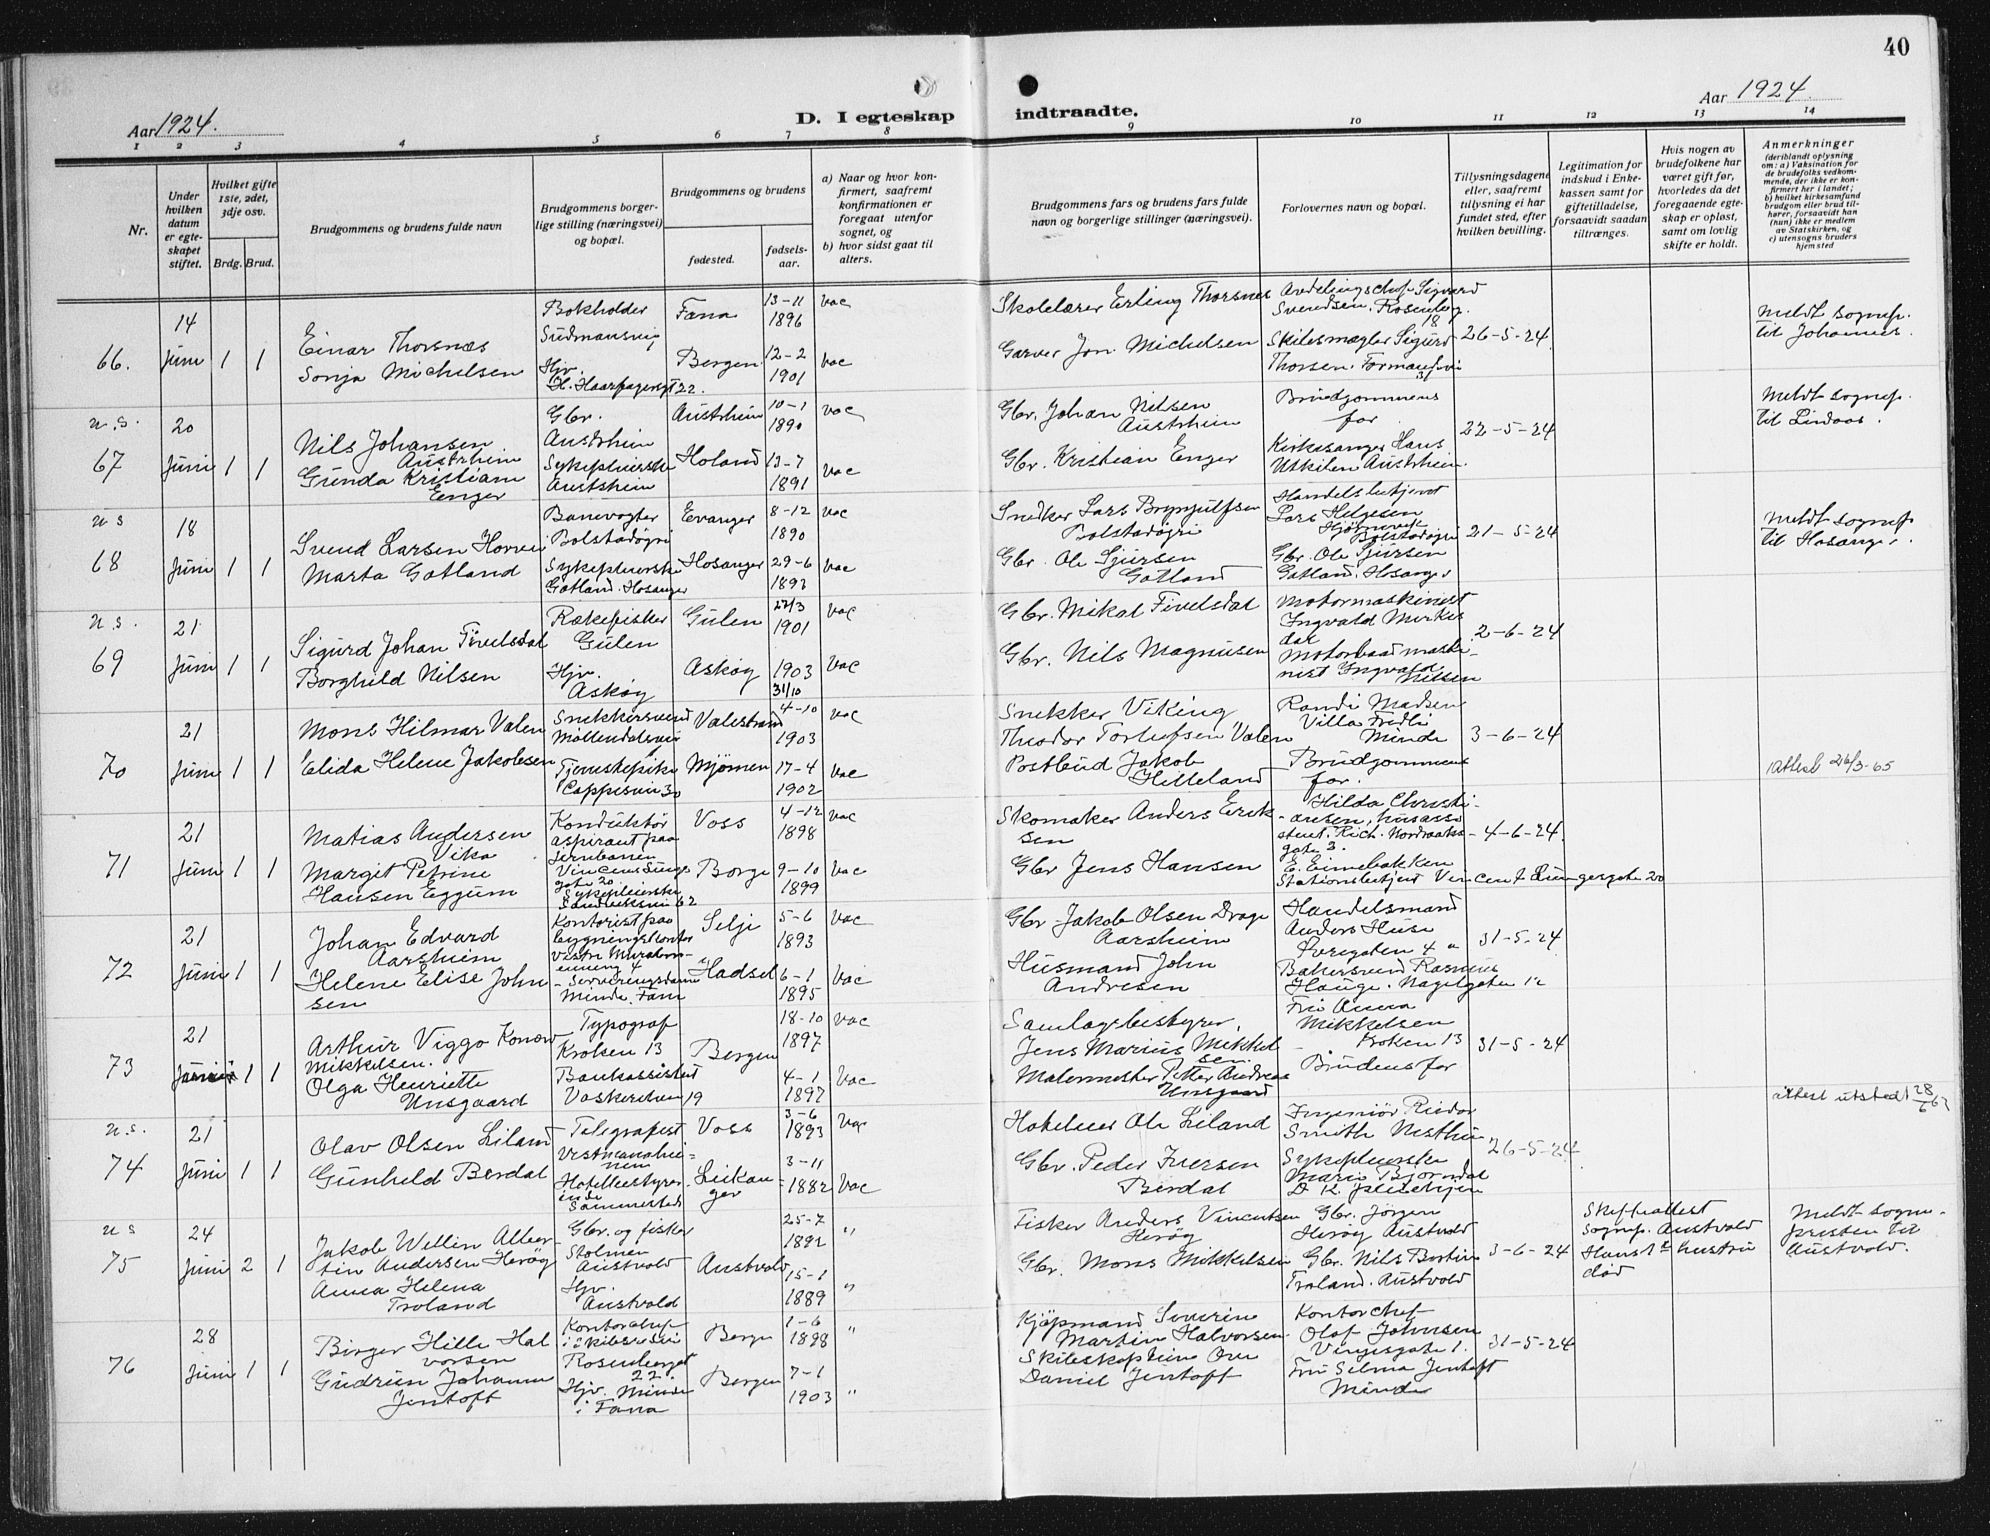 40
Aar 1924.
D. I egteskap indtraadte.
Aar 1924.
1 2 3 4 5 6 7 8 9 10 11 12 13 14
Nr.
Under hvilken datum er egteskapet stiftet.
Hvilket gifte 1ste, 2det, 3dje osv.
Brdg. Brud.
Brudgommens og brudens fulde navn
Brudgommens borgerlige stilling (næringsvei) og bopæl.
Brudgommens og brudens
fødested.
fødselsaar.
a) Naar og hvor konfirmert, saafremt konfirmationen er foregaat utenfor sognet, og
b) hvor sidst gaat til alters.
Brudgommens fars og brudens fars fulde navn og borgerlige stillinger (næringsvei).
Forlovernes navn og bopæl.
Tillysningsdagene eller, saafremt tillysning ei har fundet sted, efter hvilken bevilling.
Legitimation for indskud i Enkekassen samt for giftetilladelse, forsaavidt saadan tiltrænges.
Hvis nogen av brudefolkene har været gift før, hvorledes da det foregaaende egteskap er opløst, samt om lovlig skifte er holdt.
Anmerkninger
(deriblandt oplysning om: a) Vaksination for de brudefolks vedkommende, der ikke er konfirmert her i landet; b) hvilket kirkesamfund brudgom eller brud tilhører, forsaavidt han (hun) ikke er medlem av Statskirken, og c) utensogns bruders hjemsted
66.
14 Juni 1 1
Einar Thorsnæs
Sonja Michelsen
Bokholder
Hjv.
H. Haarfagersgt 22.
Fana 13-11 1896 vac
Bergen 12-2 1901 vac
Skolelærer Erling Thorsnes
Garver Jon Michelsen
Avdelingschef Sigvard
Svendsen. Rosenberg. 18
Skibsmægler Sigurd
Thorsen.
26-5-24
Meldt sognep.
til Johannes.
u.s.
67
20 Juni 1 1
Nils Johansen
Austrheim
Gunda Kristiane
Enger
Gbr.
Austrheim
Sykepleierske
Austrheim
Austrheim 10-1 1890 vac
Høland 13-7 1891 vac
Gbr. Johan Nilsen
Austrheim
Gbr. Kristian Enger
Brudgommens
far
Kirkesanger Hans
Utkilen Austrheim.
22-5-24
Meldt sognep.
til Lindaas.
u s
68
18 Juni 1 1
Svend Larsen
Marta Gotland
Banevogter
Bolstadøyri
Sykepleierske
Gotland. Hosanger
Evanger 8-12 1890 vac
Hosanger 29-6 1893 vac
Snedker Lars Brynjulfsen
Bolstadøyri
Gbr. Ole Sjursen
Gotland
Handelsbetjent
Lars Helgesen
Bolstadøyri
Gbr. Ole Sjursen
Gotland. Hosanger
21-5-24
Meldt sognep
til Hosanger.
u.s.
69
21 Juni 1 1
Sigurd Johan Fivelsdal
Borghild Nilsen
Rækefisker
Gulen
Hjv.
Askøy
Gulen 27/3 1901 vac
Askøy 1903 31/10 vac
Gbr. Mikal Fivelsdal
Gbr. Nils Magnusen
Motormaskinist
Ingvald
Motorbaadmaski-
nist Ingvald
Nilsen
2-6-24
70
21 Juni 1 1
Mons Hilmar Valen
Elida Helene Jakobsen
Snekkersvend
Møllendalsvei
Tjenestepike
Cappesvei 30
Valestrand 4-10 1903 vac
Mjømen 17-4 1902 vac
Snekker Viking
Theodor Torlufsen Valen
Postbud Jakob
Hilleland
Randi Madsen
Villa Fredli
Minde
Brudgommens
far.
3-6-24
Attest 26/3-65
71
21 Juni 1 1
Matias Andersen
Vika
Margit Petrine
Hansen Eggum
Konduktør
aspirant paa
Jernbanen
gate 20
Sykepleierske
Voss 4-12 1898 vac
Borge 9-10 1899 vac
Skomaker Anders Erik-
sen
Gbr Jens Hansen
Hilda Christi-
ansen, husassi
stent. Rich. Nordraaks-
gate 3.
E. Eimebakken
Stationsbetjent Vincent Lungesgate 20
4-6-24
72
21 Juni 1 1
Johan Edvard
Aarsheim
Helene Elise John
sen
Kontorist paa
bygningskontor
Serveringsdame
Minde. Fana
Selje 5-6 1893 vac
Hadsel 6-1 1895 vac
Gbr Jakob Olsen Drage
Aarsheim
Husmand John
Andresen
Handelsmand
Anders Huse
Øvregaten 4 a
Bakersvend Rasmus
Hauge. Nagelgaten 12
31-5-24
73
21 Juni 1 1
Arthur Viggo Konow
Mikkelsen.
Olga Henriette
Unsgaard
Typograf
Kroken 13
Bankassistent
Vaskerelven 19
Bergen
18-10 1897 vac
4-1 1897 vac
Samlagsbestyrer,
Jens Marius Mikkel
sen.
Malermester Petter Andreas
Unsgaard
Fru Anna
Mikkelsen
Kroken 13
Brudens far
31-5-24
u.s.
74
21 Juni 1 1
Olav Olsen Liland
Gunhild Berdal
Telegrafist
Hotelbestyrer-
inde
Sammested
Voss 3-6 1893 vac
Leikan-
ger 3-11 1882 vac
Hoteleier Ole Liland
Gbr. Peder Iversen
Berdal
Ingeniør
Smith
Sykepleierske
Marie Bjørndal
26-5-24
attest utstedt 28/6 63
u s
75
24 Juni 2 1
Jakob Willin Alber-
tin Andersen Herøy
Anna Helena
Troland
Gbr. og fisker
Stolmen
Austvold
Hjv.
Austvold
Austvold
25-7 1892 "
15-1 1889 "
Fisker Anders Vincentsen
Herøy
Gbr. Mons Mikkelsen
Gbr. Jørgen
Herøy Austvold
Gbr. Nils Bertin
Troland. Austvold
3-6-24
Skifteattest
sognep. Austvold
Hans 1ste hustru
død
Meldt sogne-
presten til
Austvold.
76
28 Juni 1 1
Birger Hille Hal
vorsen
Gudrun Johanne
Jentoft
Kontorchef
Rosenbergsgt
22.
Hjv. Minde
i Fana
Bergen 1-6 1898 "
Bergen 7-1 1903 "
Kjøpmand Severin
Martin Halvorsen.
Skibskaptein Ove
Daniel Jentoft
Kontorchef
Olaf Johnsen
1.
Fru Selma Jentoft
Minde
31-5-24